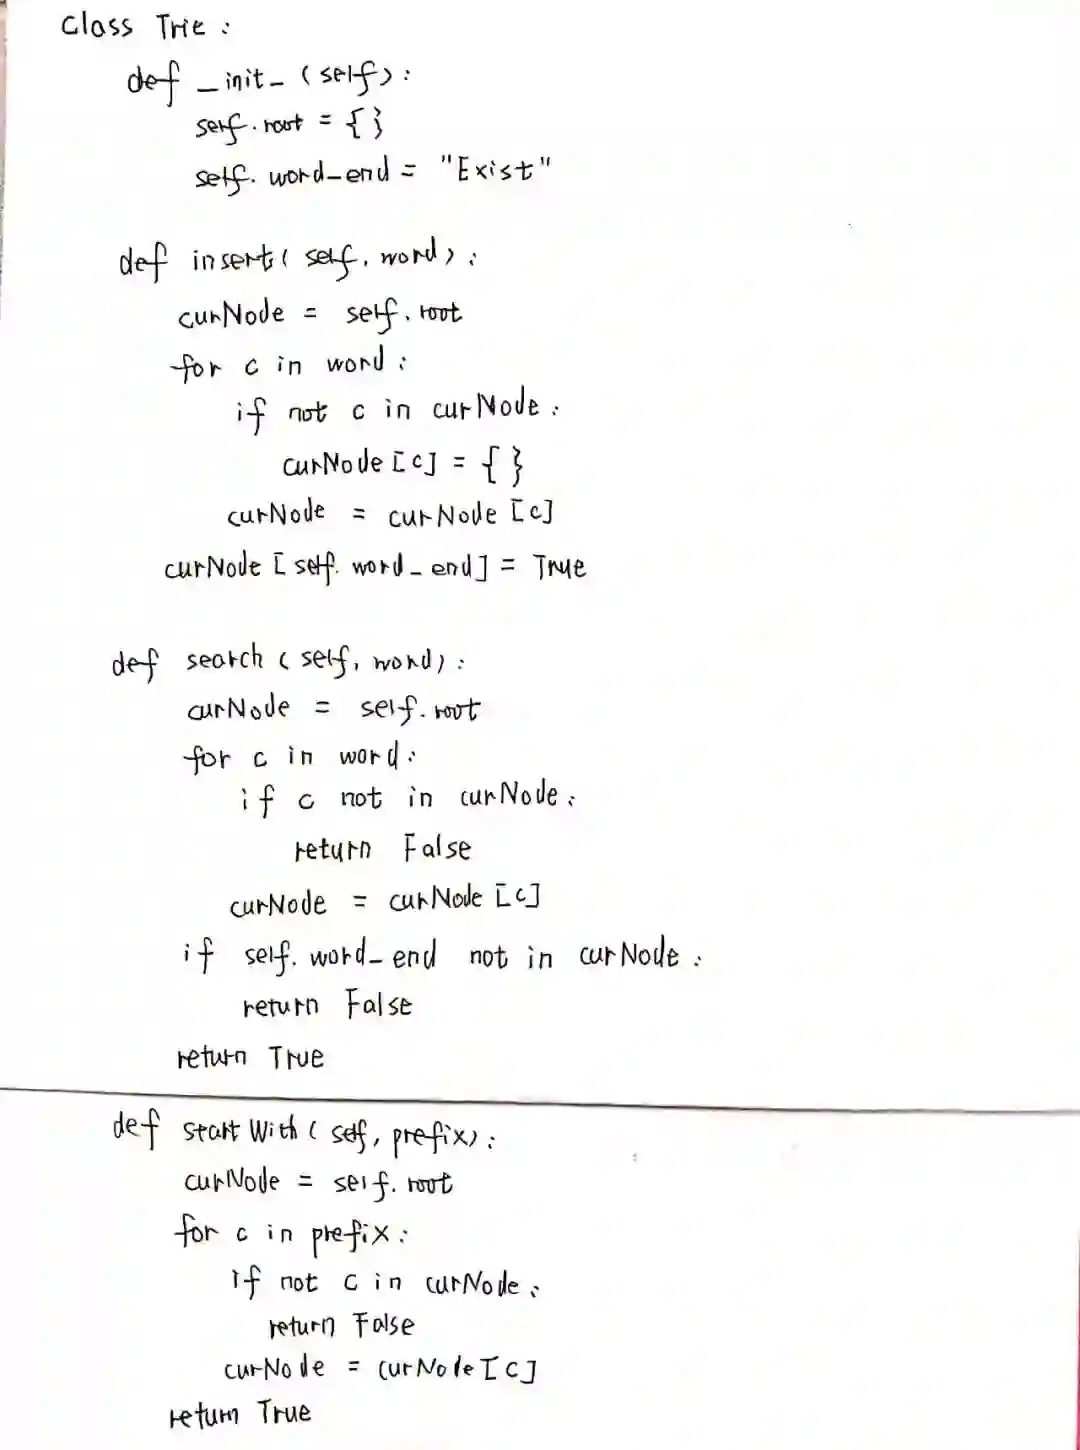 class Trie :
def _init_ (self):
self.root = {}
self.word_end = "Exist"
def insert( self, word):
curNode = self.root
for c in word:
if not c in curNode:
curNode[c] = {}
curNode = curNode[c]
curNode[self.word_end] = True
def search (self, word):
curNode = self.root
for c in word:
if c not in curNode:
return False
curNode = curNode[c]
if self.word_end not in curNode:
return False
return True
def startWith (self, prefix):
curNode = self.root
for c in prefix:
if not c in curNode:
return False
curNode = curNode[c]
return True